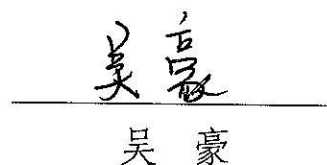 吴豪
吴 豪